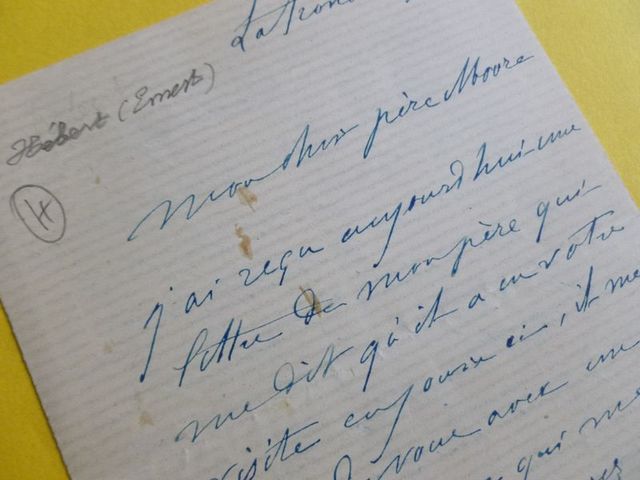 La Tron
Hébert (Ernest)
H
Mon cher père Moore
j'ai reçu aujourd'hui une
lettre de mon père qui
me dit qu'il a eu votre
visite ces jours ci, il me
vous avec un
qui me